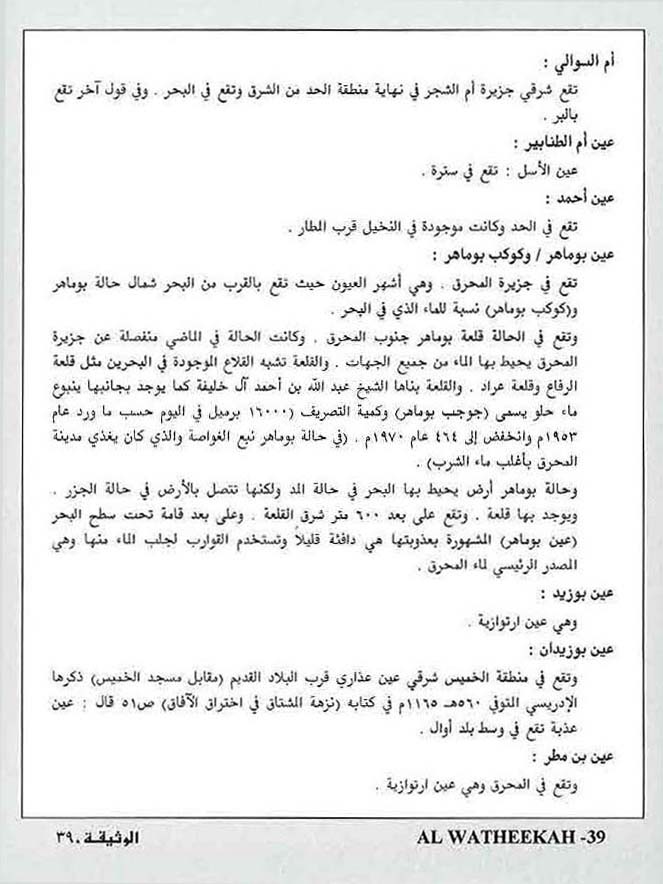 أم السوالي :
تقع شرقي جزيرة أم الشجر في نهاية منطقة الحد من الشرق وتقع في البحر . وفي قول آخر تقع
بالبر .
عين أم الطنابير :
عين الأسل : تقع في سترة .
عين أحمد :
تقع في الحد وكانت موجودة في النخيل قرب المطار .
عين بوماهر / وكوكب بوماهر :
تقع في جزيرة المحرق . وهي أشهر العيون حيث تقع بالقرب من البحر شمال حالة بوماهر
و(كوكب بوماهر) نسبة للماء الذي في البحر .
وتقع في الحالة قلعة بوماهر جنوب المحرق . وكانت الحالة في الماضي منفصلة عن جزيرة
المحرق يحيط بها الماء من جميع الجهات . والقلعة تشبه القلاع الموجودة في البحرين مثل قلعة
الرفاع وقلعة عراد . والقلعة بناها الشيخ عبد الله بن أحمد آل خليفة كما يوجد بجانبها ينبوع
ماء حلو يسمى (جوجب بوماهر) وكمية التصريف (١٦٠٠٠ برميل في اليوم حسب ما ورد عام
١٩٥٣م وانخفض إلى ٤٦٤ عام ١٩٧٠م . (في حالة بوماهر نبع الغواصة والذي كان يغذي مدينة
المحرق بأغلب ماء الشرب) .
وحالة بوماهر أرض يحيط بها البحر في حالة المد ولكنها تتصل بالأرض في حالة الجزر .
ويوجد بها قلعة . وتقع على بعد ٦٠٠ متر شرق القلعة . وعلى بعد قامة تحت سطح البحر
(عين بوماهر) المشهورة بعذوبتها هي دافئة قليلاً وتستخدم القوارب لجلب الماء منها وهي
المصدر الرئيسي لماء المحرق .
عين بوزيد :
وهي عين ارتوازية .
عين بوزيدان :
وتقع في منطقة الخميس شرقي عين عذاري قرب البلاد القديم (مقابل مسجد الخميس) ذكرها
الإدريسي التوفي ٥٦٠هـ ١١٦٥م في كتابه (نزهة الشتاق في اختراق الآفاق) ص٥١ قال : عين
عذبة تقع في وسط بلد أوال .
عين بن مطر :
وتقع في المحرق وهي عين ارتوازية .
الوثيقة . ٣٩
AL WATHEEKAH -39